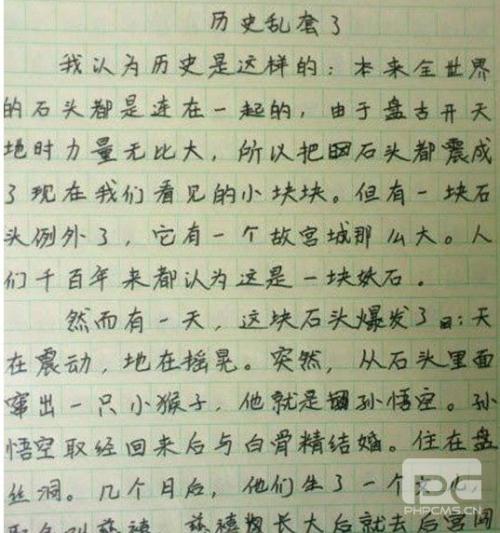 历史乱套了
我认为历史是这样的：本来全世界
的石头都是连在一起的，由于盘古开天
地时力量无比大，所以把石头都震成
了现在我们看见的小块块。但有一块石
头例外了，它有一个故宫城那么大。人
们千百年来都认为这是一块妖石。
然而有一天，这块石头爆发了：天
在震动，地在摇晃。突然，从石头里面
窜出一只小猴子，他就是孙悟空。孙
悟空取经回来后与白骨精结婚。住在盘
丝洞。几个月后，他们生了一个女儿，
慈禧长大后就去后宫
PHPCMS.CN